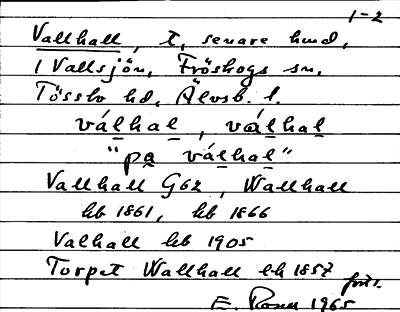 1-2
Vallhall, t, senare hmd,
i Vallsjön, Fröskogs sn,
Tössbo hd, Älvsb. l.
válhal, válhal
"på válhal"
Vallhall G62, Wallhall
hb 1861, hb 1866
Valhall hb 1905
Torpet Wallhall lh 1857
forts.
E. 1965